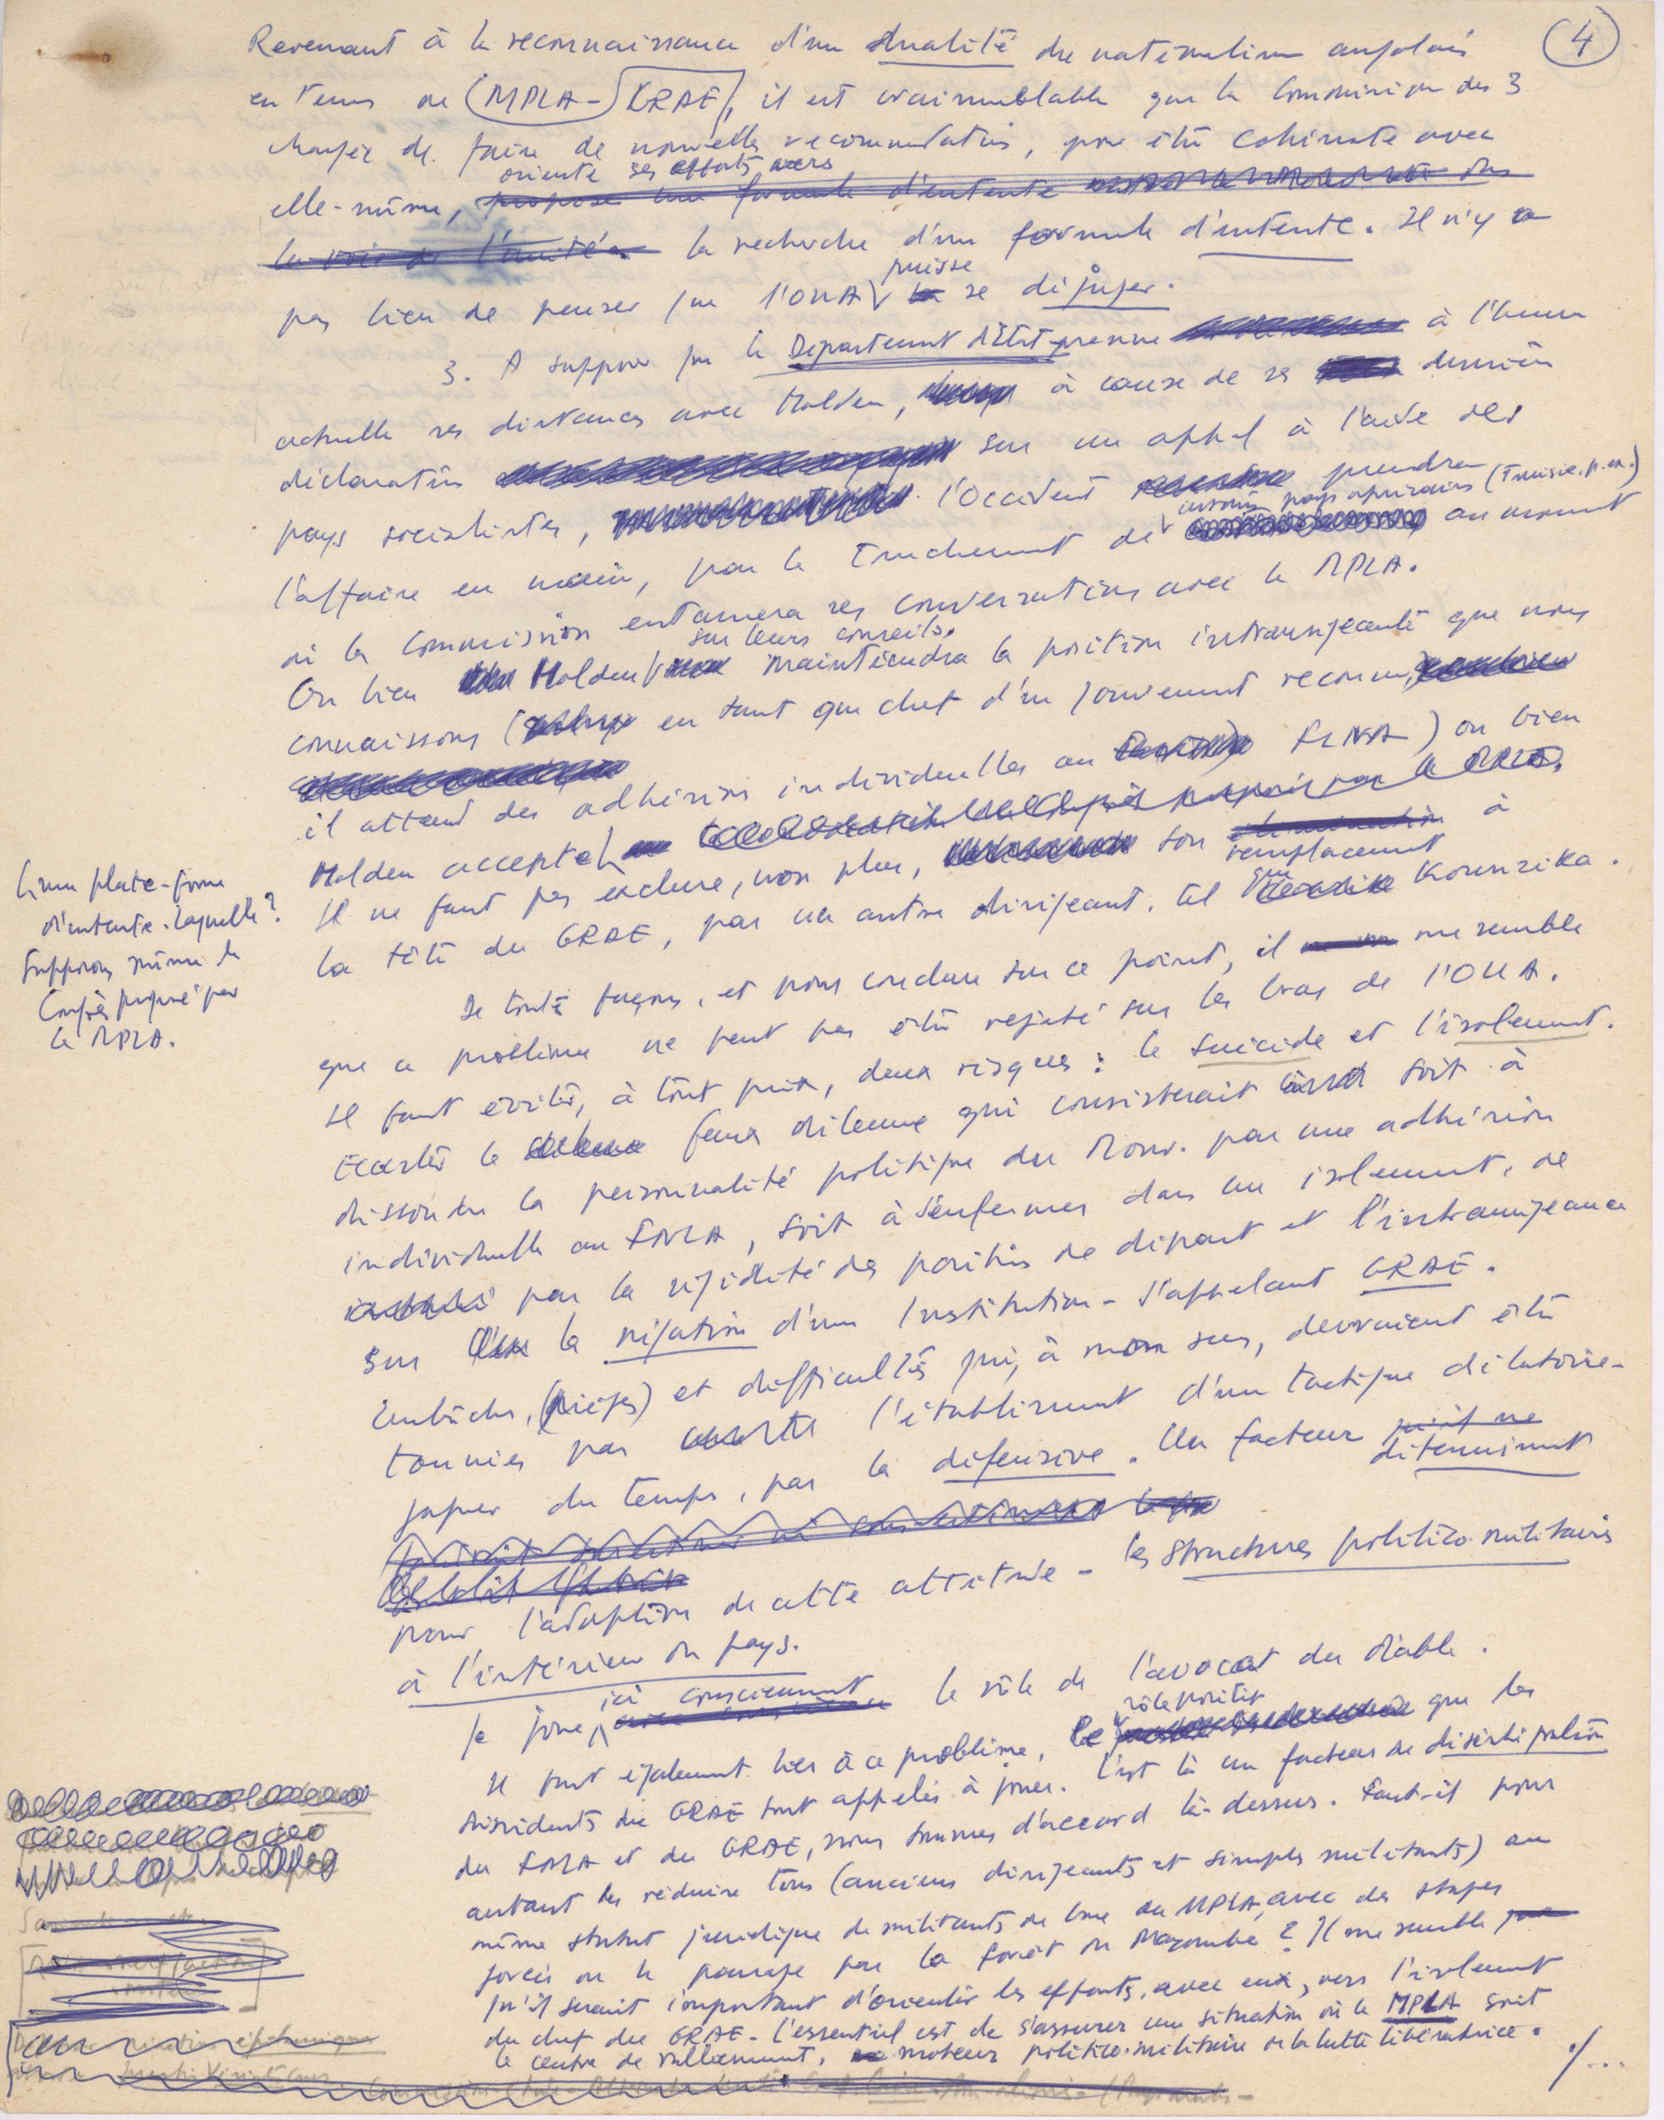 4
Revenant à la reconnaissance d'une dualité du nationalisme angolais
en termes de (MPLA - GRAE), il est vraisemblable que la Commission des 3
chargée de faire de nouvelles recommandations, pour être cohérente avec
oriente ses efforts vers
elle-même, propose une formule d'entente
la voie de l'unité. la recherche d'une formule d'entente. Il n'y a
puisse
pas lieu de penser que l'OUA se déjuger.
3. A supposer que le Département d'Etat prenne à l'heure
actuelle ses distances avec Holden, à cause de ses dernières
déclarations sur un appel à l'aide des
pays socialistes, l'Occident prendra
certains pays africains (Tunisie. p. ex.)
l'affaire en main, par le truchement de au moment
où la Commission entamera ses conversations avec le MPLA.
sur leurs conseils,
Ou bien Holden maintiendra la position intransigeante que nous
connaissons (en tant que chef d'un gouvernement reconnu,
il attend des adhésions individuelles au FLNA) ou bien
Holden accepte
Il ne faut pas exclure, non plus, son élimination à
remplacement
la tête du GRAE, par un autre dirigeant, tel que Kounzika.
L'une plate-forme
d'entente. Laquelle?
Supposons même le
Congrès proposé par
le MPLA.
De toute façon, et pour conclure sur ce point, il me semble
que ce problème ne peut pas être rejeté sur les bras de l'OUA.
Il faut éviter, à tout prix, deux risques : le suicide et l'isolement.
Ecarter le faux dilemme qui consisterait soit à
dissoudre la personnalité politique du Mouv. par une adhésion
individuelle au FNLA, soit à s'enfermer dans un isolement, de
par la rigidité des positions de départ et l'intransigeance
sur la négation d'une Institution - s'appelant GRAE.
Embûches, (pièges) et difficultés qui, à mon sens, devraient être
tournées par l'établissement d'une tactique dilatoire -
gagner du temps, par la défensive. Un facteur
déterminant
pour l'adoption de cette attitude - les structures politico-militaires
à l'intérieur du pays.
ici consciemment
Je joue le rôle de l'avocat du diable.
rôle positif
Il faut également lier à ce problème, le que les
dissidents du GRAE sont appelés à jouer. C'est là un facteur de désintégration
du FNLA et du GRAE, nous sommes d'accord là-dessus. Faut-il pour
autant les réduire tous (anciens dirigeants et simples militants) au
même statut juridique de militants de base du MPLA, avec des stages
forcés ou le passage par la forêt du Mayombe? Il me semble
qu'il serait important d'orienter les efforts, avec eux, vers l'isolement
du chef du GRAE - L'essentiel est de s'assurer une situation où le MPLA soit
le centre de ralliement, moteur politico-militaire de la lutte libératrice.
./...